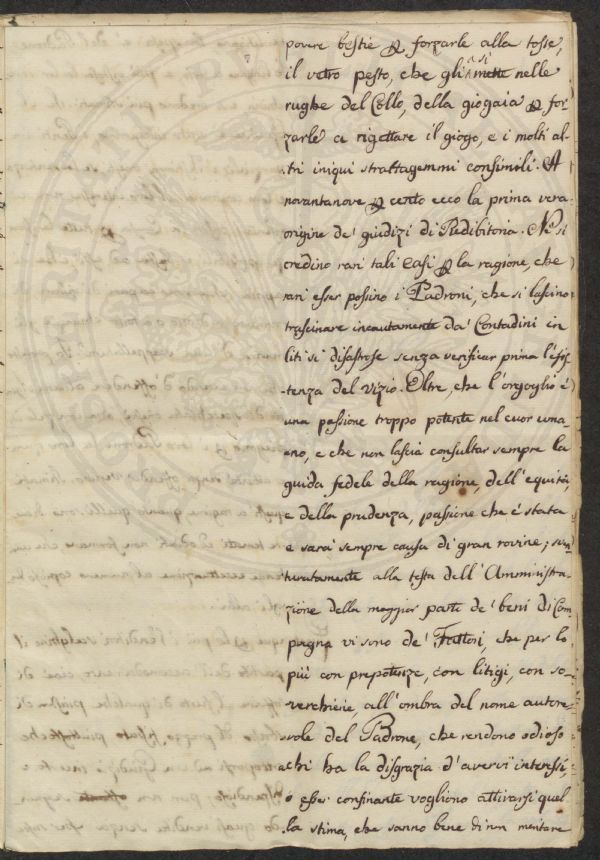 povere bestie per forzarle alla tosse,
il vetro pesto, che gli si mette nelle
rughe del Collo, della giogaia per for
zarle a rigettare il giogo, e i molti al-
tri iniqui strattagemmi consimili. A
novantanove per cento ecco la prima vera
origine de' giudizj di Redibitoria. Nè si
credino rari tali Casi per la ragione, che
rari esser possino i Padroni, che si lascino
trascinare incautamente da' Contadini in
liti sì disastrose senza verificar prima l'esis
tenza del vizio. Oltre, che l'orgoglio è
una passione troppo potente nel cuor uma-
ano, e che non lascia consultar sempre la
guida fedele della ragione, dell'equità,
e della prudenza, passione che è stata
e sarà sempre causa di gran rovine; sven
turatamente alla testa dell'Amministra-
zione della maggior parte de' beni di Cam
pagna vi sono de' Fattori, che per lo
più con prepotenze, con litigj, con so-
verchierie, all'ombra del nome autore
vole del Padrone, che rendono odioso
chi ha la disgrazia d'avervi interessi,
o esser confinante vogliono attirarsi quel
la stima, che sanno bene di non meritare